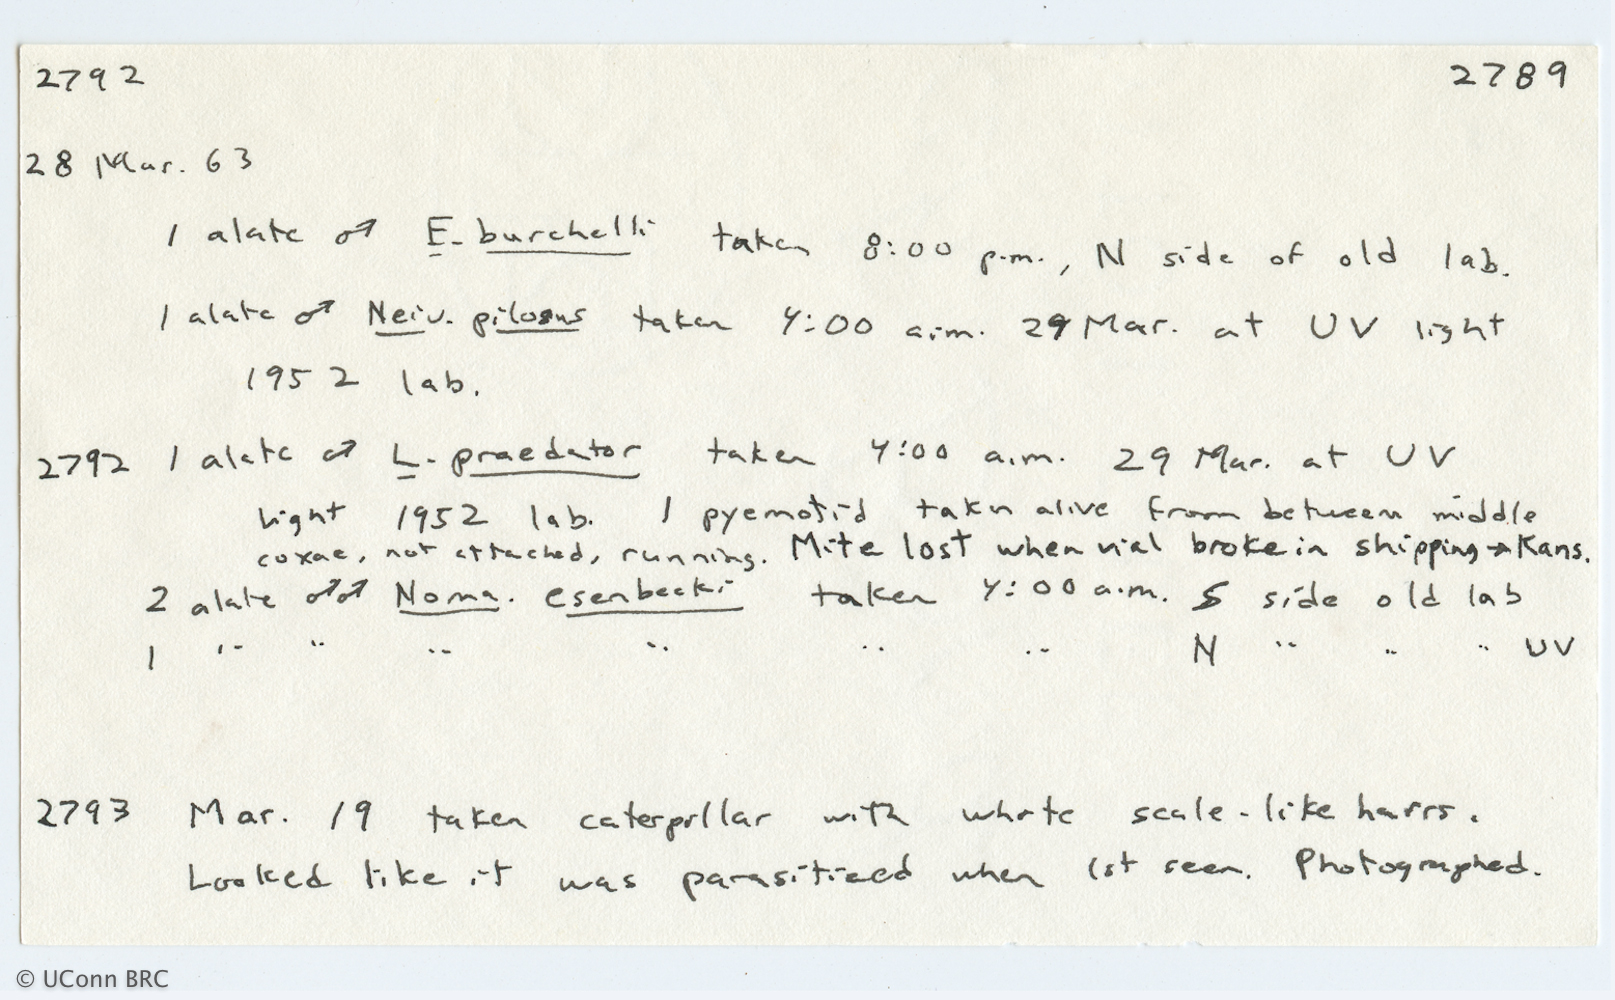 2792 2789
28 Mar. 63
1 alate ♂ E. burchelli taken 8:00 p.m., N side of old lab.
1 alate ♂ Neiv. pilosus taken 4:00 a.m. 29 Mar. at UV light
1952 lab.
2792 1 alate ♂ L. praedator taken 4:00 a.m. 29 Mar. at UV
light 1952 lab. 1 pyemotid taken alive from between middle
coxae, not attached, running. Mite lost when vial broke in shipping → Kans.
2 alate ♂♂ Noma. esenbecki taken 4:00 a.m. S side old lab
1 " " " " " " N " " " UV
2793 Mar. 19 taken caterpillar with white scale-like hairs.
Looked like it was parasitized when 1st seen. Photographed.
© UConn BRC